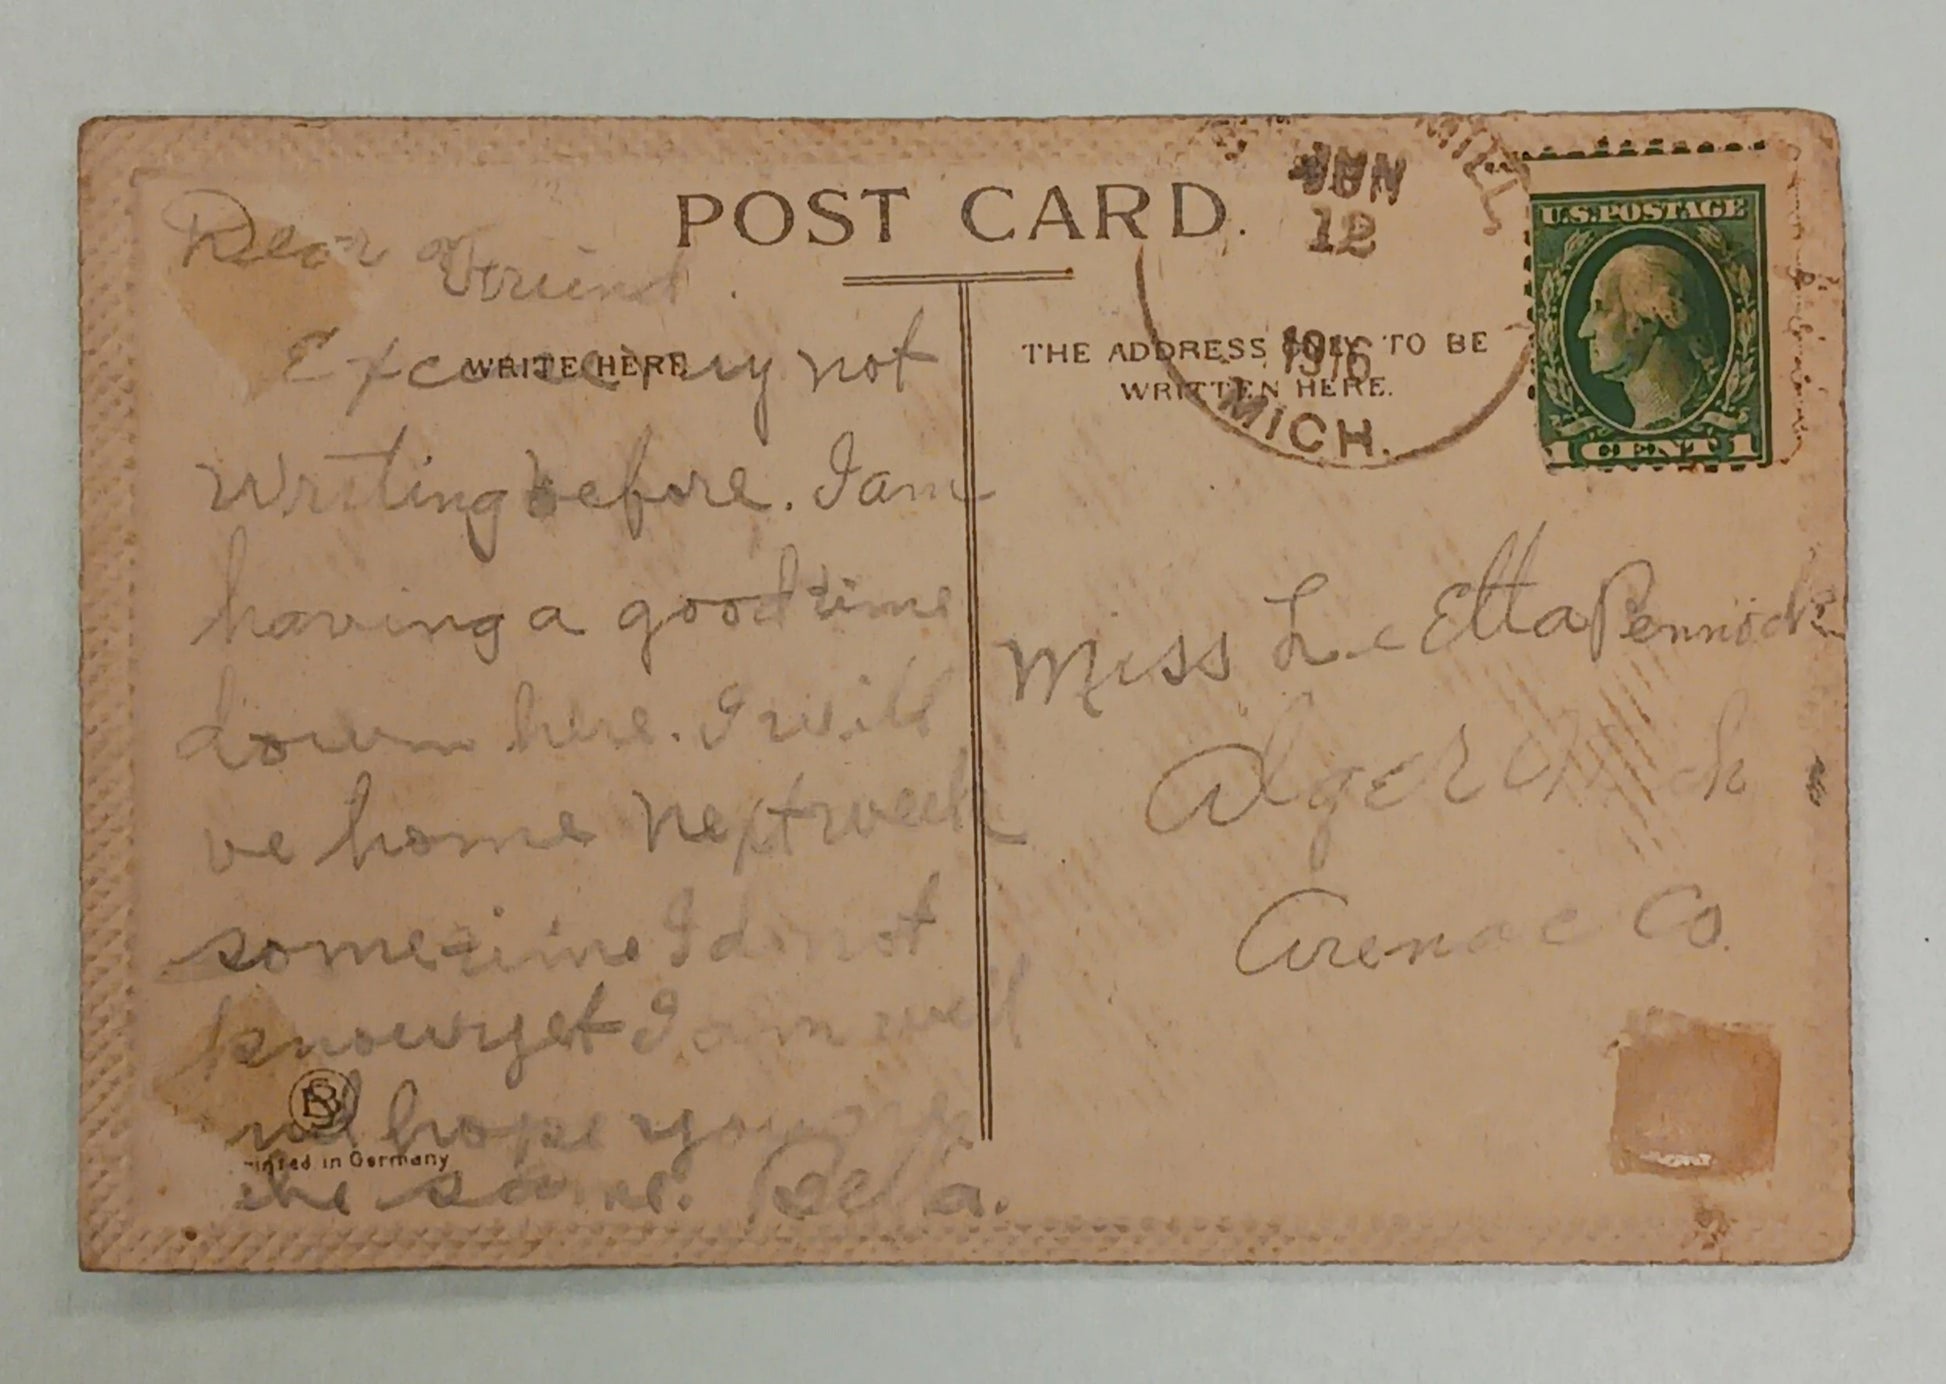 POST CARD.
Dear Friend.
WRITE HERE
Excuse my not
writing before. I am
having a good time
down here. I will
be home next week
sometime I do not
know yet I am well
and hope you are
the same. Bella.
BS
Printed in Germany
JUN
12
1916
MICH.
U.S. POSTAGE
1 CENT 1
THE ADDRESS ONLY TO BE
WRITTEN HERE.
Miss LeEtta Pennock
Alger Mich
Arenac Co.